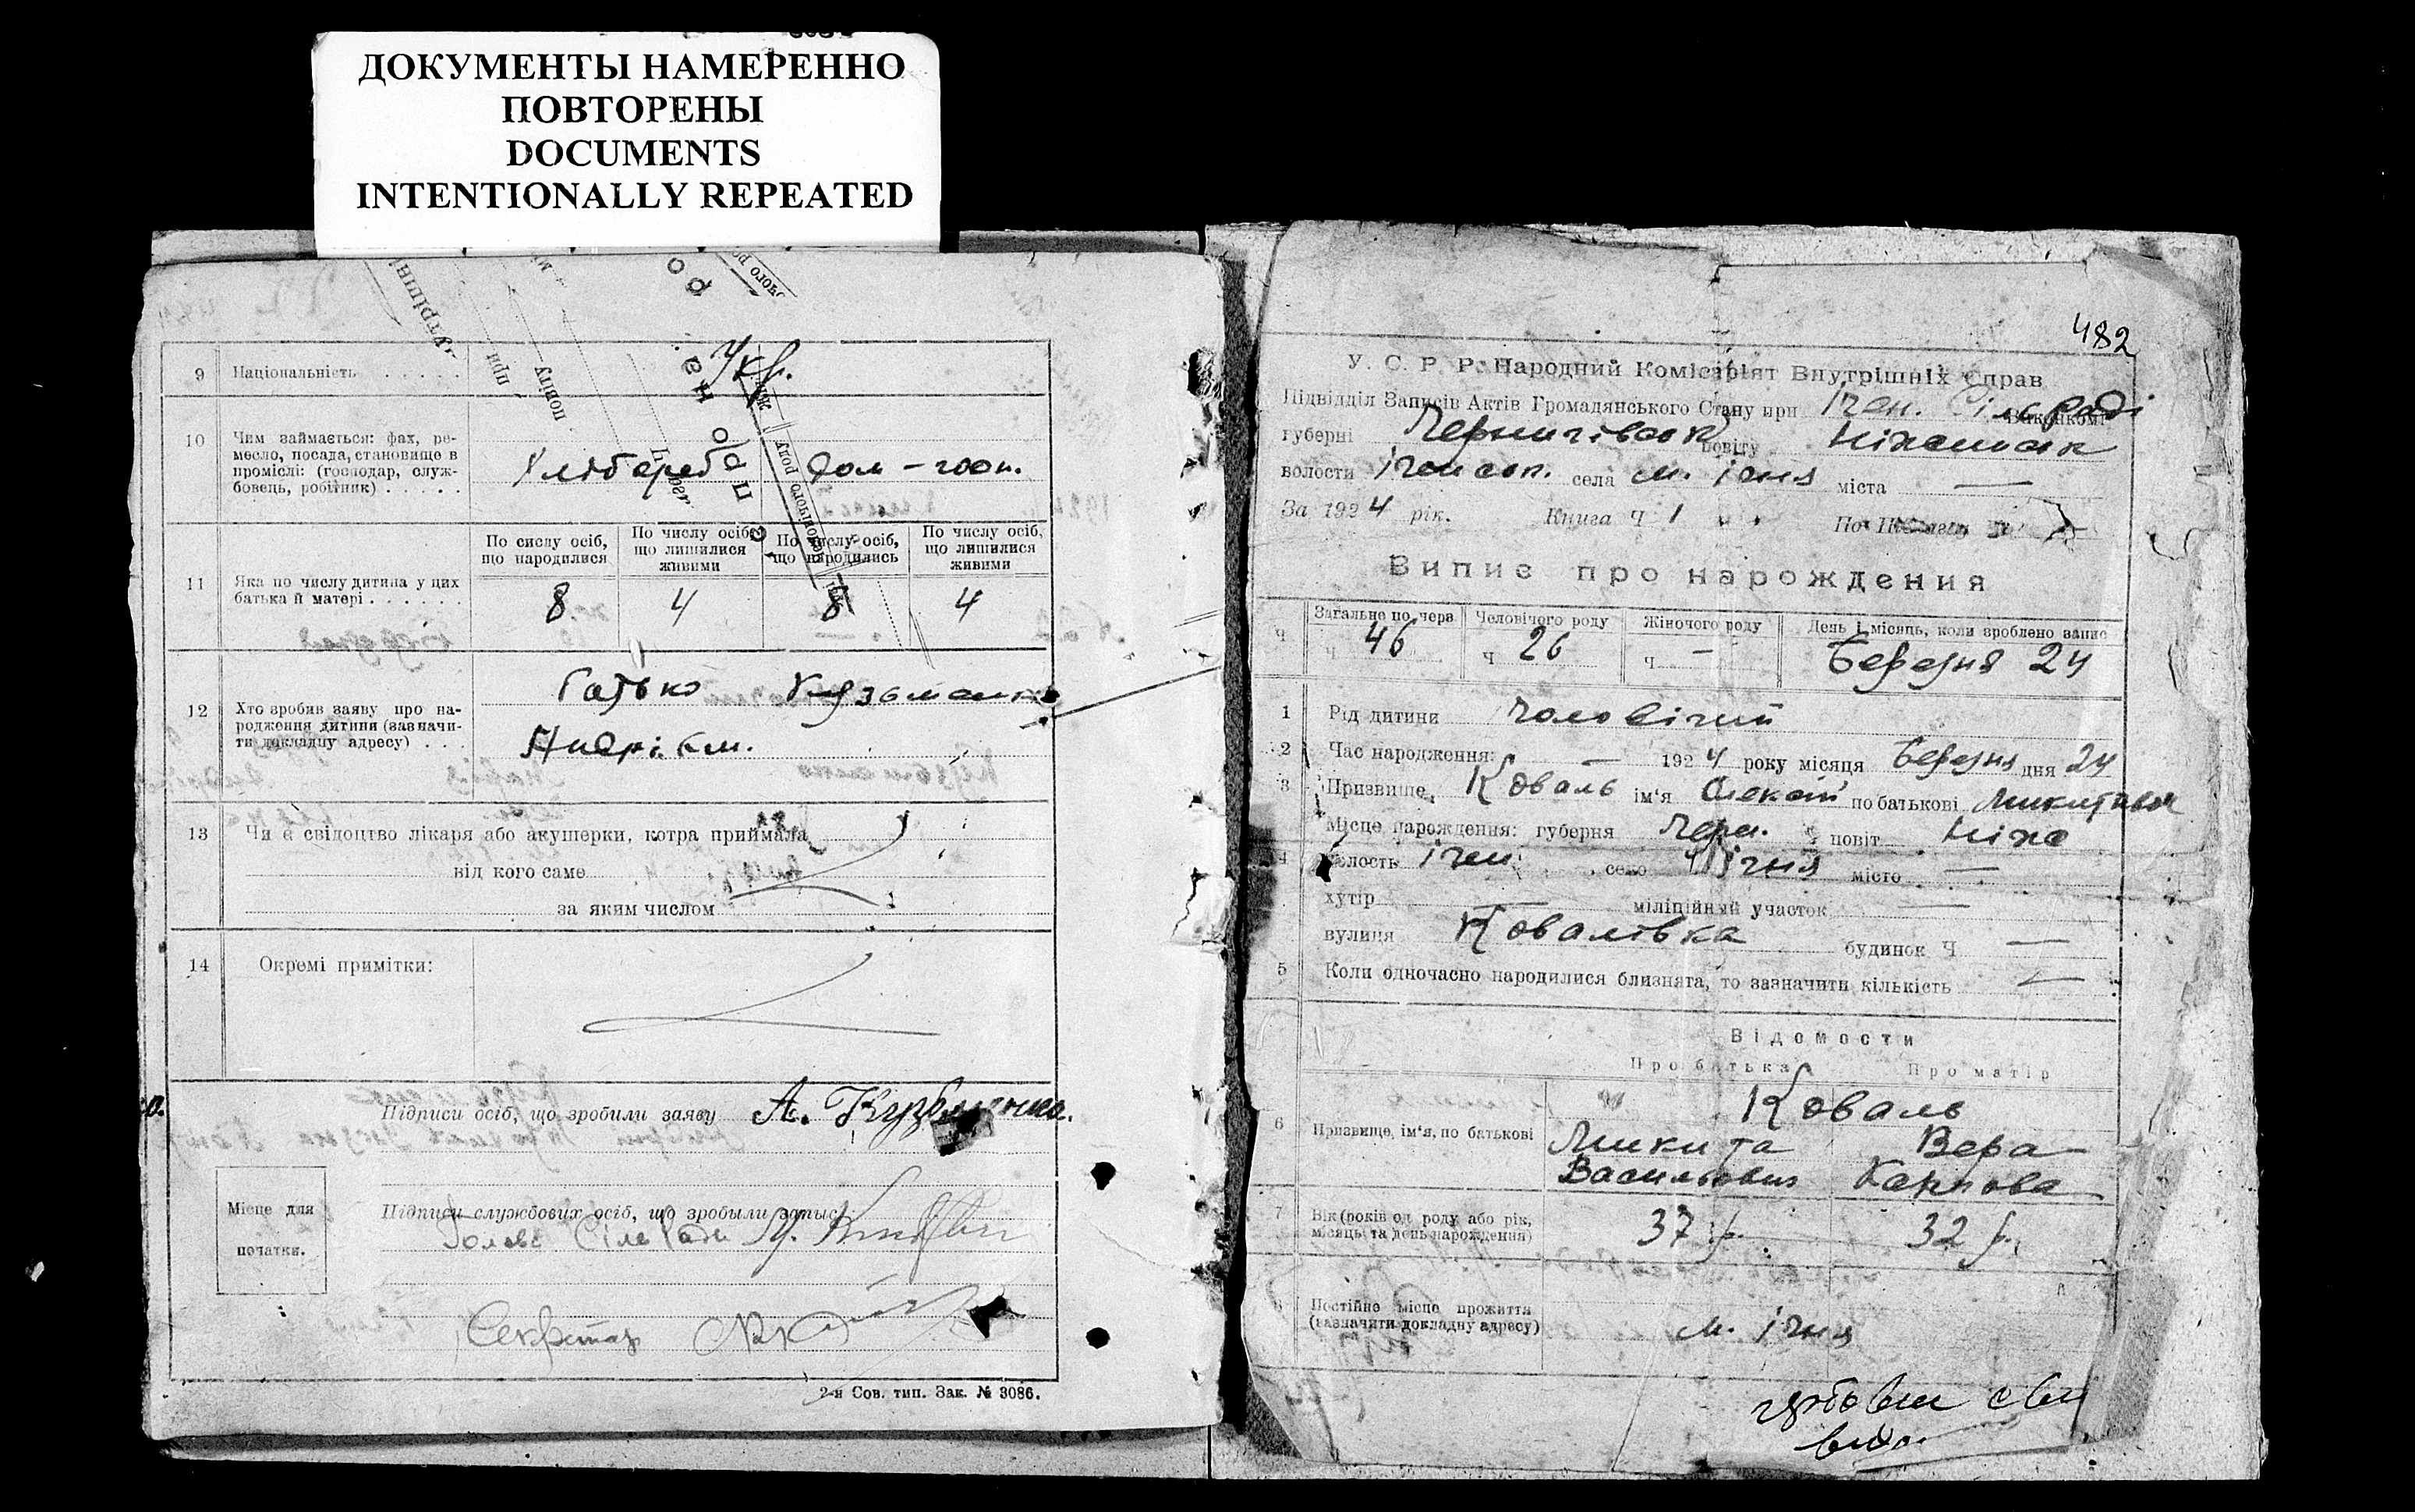 ДОКУМЕНТЫ НАМЕРЕННО
ПОВТОРЕНЫ
DOCUMENTS
INTENTIONALLY REPEATED
9 Національність . . . . . Укр.
10 Чим займається: фах, ре-
месло, посада, становище в
проміслі: (господар, служ-
бовець, робітник) . . . . .
Хлібороб дом-госп.
11 Яка по числу дитина у цих
батька й матері . . . . . .
По сислу осіб, що народилися
По числу осіб, що лишилися живими
По числу осіб, що народились
По числу осіб, що лишилися живими
8 4 8 4
12 Хто зробив заяву про на-
родження дитини (зазначи-
ти докладну адресу) . . .
Батько Кузьменко
Андрій
13 Чи є свідоцтво лікаря або акушерки, котра приймала
від кого саме
за яким числом
14 Окремі примітки:
Підписи осіб, що зробили заяву А. Кузьменко.
Місце для
початки.
Підписи службових осіб, що зробыли запис
Голова Сільради
Секретар
2-я Сов. тип. Зак. № 3086.
482
У. С. Р. Р. Народний Комісаріят Внутрішніх Справ
Підвідділ Записів Актів Громадянського Стану при Ічен. Сільраді Виконкомі
губерні Чернигівськ повіту Ніженськ
волости Іченськ. села м. Ічня міста —
За 1924 рік. Книга Ч 1
Випис про нарождения
Загальне по черв Человічого роду Жіночого роду День і місяць, коли зроблено запис
Ч Ч 46 Ч 26 Ч — Березня 24
1 Рід дитини Чоловічий
2 Час народження: — 1924 року місяця Березня дня 24
3 Призвище, Коваль ім'я Олексій по батькові Микитович
4 Місце нарождения: губерня Черн. повіт Ніже
волость Ічен. село Ічня місто —
хутір — міліційный участок —
вулиця Ковалівка будинок Ч —
5 Коли одночасно народилися близнята, то зазначити кількість —
Відомости
Про батька Про матір
6 Призвище, ім'я, по батькові
Коваль
Микита Вера
Васильович Карпова
7 Вік (років од роду або рік,
місяць та день нарождения)
37 р. 32 р.
8 Постійне місце прожиття
(зазначити докладну адресу)
м. Ічня